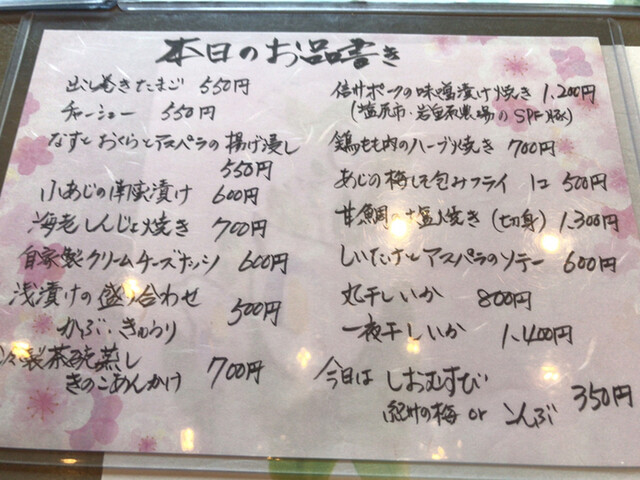 本日のお品書き
出し巻きたまご 550円
チャーシュー 550円
なすとおくらとアスペラの揚げ浸し
550円
小あじの南蛮漬け 600円
海老しんじょ焼き 700円
自家製クリームチーズナッツ 600円
浅漬けの盛り合わせ 500円
かぶ・きゅうり
冷製茶碗蒸し
きのこあんかけ 700円
信州ポークの味噌漬け焼き 1,200円
(塩尻市・岩垂原農場のSPF豚)
鶏もも肉のハーブ焼き 700円
あじの梅しそ包みフライ 1コ 500円
甘鯛の塩焼き (切身) 1,300円
しいたけとアスペラのソテー 600円
丸干しいか 800円
一夜干しいか 1,400円
今日は しおむすび 350円
紀州の梅 or こんぶ